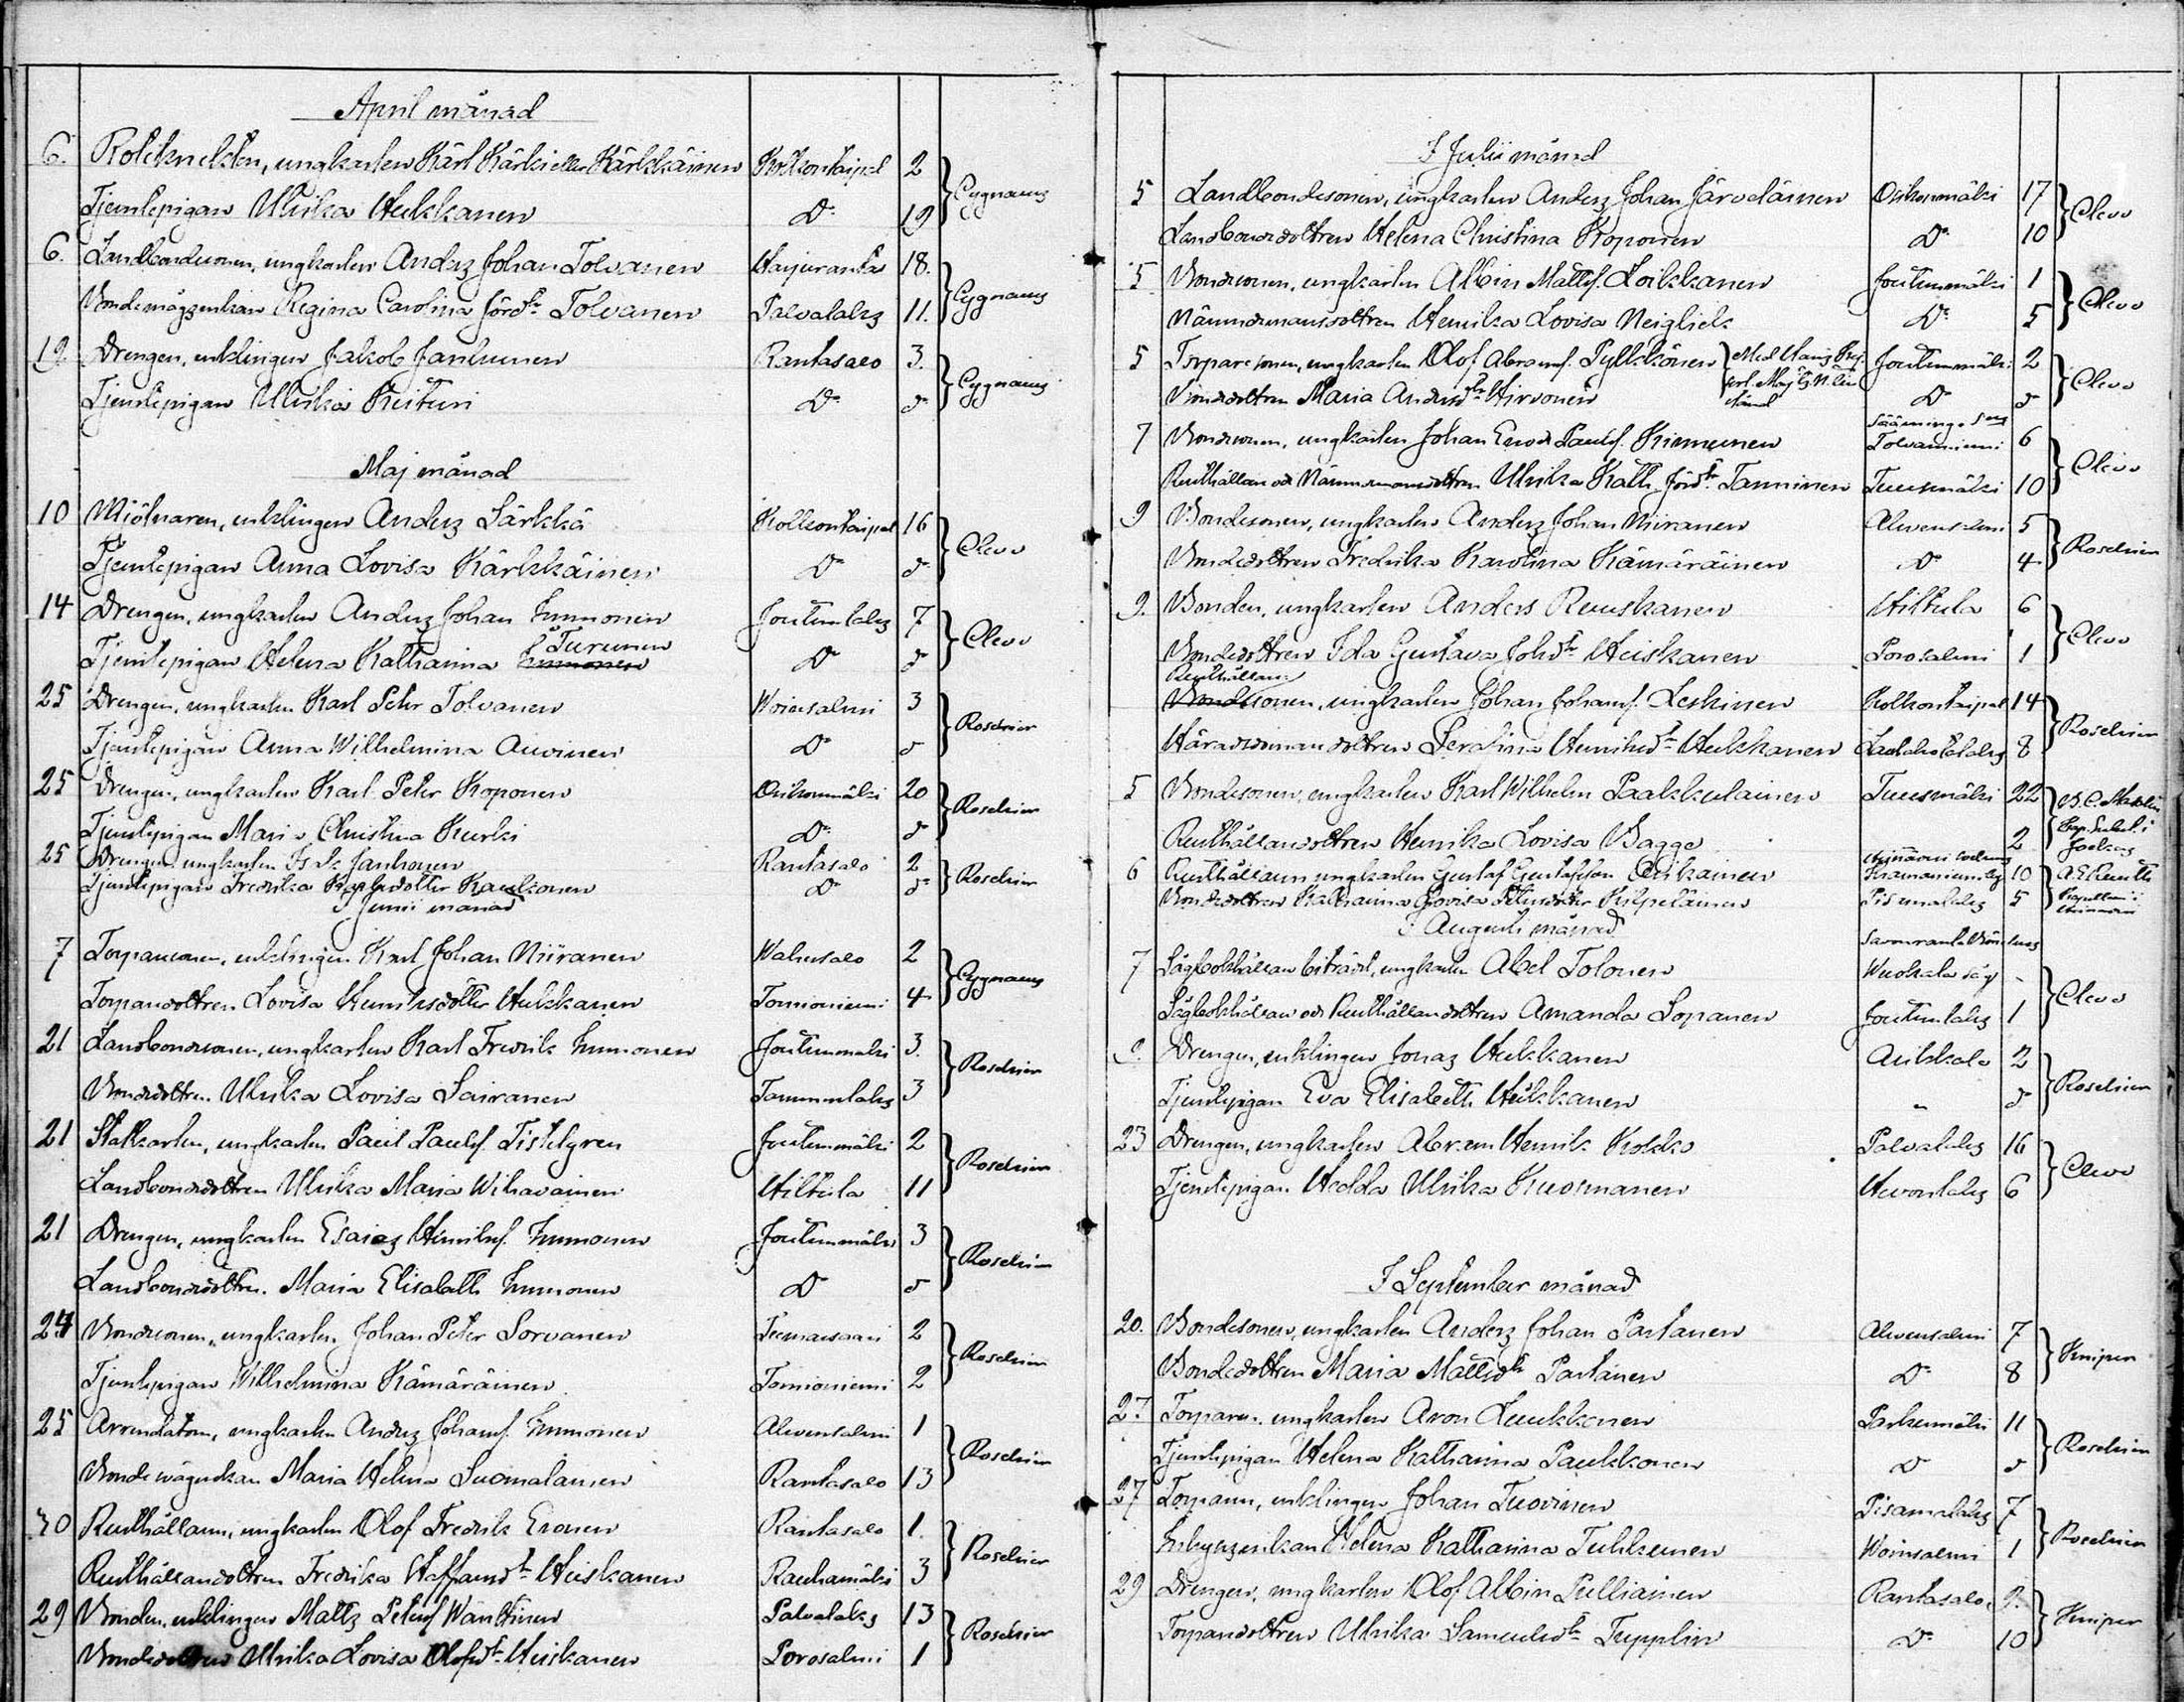 April månad
6. Roteknekten, ungkarlen Karl Kärki eller Kärkkäinen Kolkontaipal 2 Cygnaeus
Tjenstepigan Ulrika Hukkanen Do 19
6. Landbondesonen, ungkarlen Anders Johan Tolvanen Harjuranta 18. Cygnaeus
Bondemågsenkan Regina Carolina Tolvanen Palvalaks 11.
19. Drengen, enklingen Jakob Janhunen Rantasalo 3. Cygnaeus
Tjenstepigan Ulrika Do do
Maj månad
10 Mjölnaren, enklingen Anders Särkkä Kolkontaipal 16 Clevo
Tjenstepigan Anna Lovisa Kärkkäinen Do do
14 Drengen, ungkarlen Anders Johan Immonen Joutenlaks 7 Clevo
Tjenstepigan Helena Katharina Turunen Do do
25 Drengen, ungkarlen Karl Petr Tolvanen Woinsalmi 3 Roschier
Tjenstepigan Anna Wilhelmina Auvinen Do do
25 Drengen, ungkarlen Karl Peter Koponen Osikonmäki 20 Roschier
Tjenstepigan Maria Christina Kurki Do do
25 Drengen ungkarlen Isak Janhonen Rantasalo 2 Roschier
Tjenstepigan Fredrika Kaukonen Do do
I Junii månad
7 Torparesonen, enklingen Karl Johan Niiranen Wahersalo 2 Cygnaeus
Torparedottren Lovisa Henriksdotter Hukkanen Tornioniemi 4
21 Landbondesonen, ungkarlen Karl Fredrik Immonen Joutenmäki 3. Roschier
Bondedottren Ulrika Lovisa Sairanen Tammenlaks 3
21 Statkarlen, ungkarlen Paul Paulsf. Tistelgren Joutenmäki 2 Roschier
Landbondedottren Ulrika Maria Wihavainen Hiltula 11
21 Drengen, ungkarlen Esaias Henriksf. Immonen Joutenmäki 3 Roschier
Landbondedottren Maria Elisabeth Immonen Do do
24 Bondesonen, ungkarlen Johan Peter Sorvanen Teemassaari 2 Roschier
Tjenstepigan Wilhelmina Kämäräinen Tornioniemi 2
25 Arrendatorn, ungkarlen Anders Johansf. Immonen Ahvensalmi 1 Roschier
Maria Helena Suomalainen Rantasalo 13
30 Rusthållaren, ungkarlen Olof Fredrik Eronen Rantasalo 1. Roschier
Rusthållaredottren Fredrika Staffansdr Heiskanen Rauhamäki 3
29 Bonden, enklingen Matts Petersf Wänttinen Palvalaks 13 Roschier
Bondedottren Ulrika Lovisa Olofsdr Heiskanen Porosalmi 1
I Julii månad
5 Landbondesonen, ungkarlen Anders Johan Järveläinen Osikonmäki 17 Clevo
Landbondedottren Helena Christina Koponen Do 10
5 Bondesonen, ungkarlen Albin Mattsf. Loikkanen Joutenmäki 1 Clevo
Nämndemansdottren Henrika Lovisa Neiglick Do 5
5 Torparesonen, ungkarlen Olof Abramsf. Pylkkönen Med Hans Kejserl. Maj:ts N. Joutenmäki 2 Clevo
Bondedottren Maria Andersdr Hirvonen Do do
Sääminge Sn
7 Bondesonen, ungkarlen Johan Enok Paulsf. Kinnunen Tolvanniemi 6 Clevo
Rusthållare och Nämndemansdottren Ulrika Kath. Tanninen Tuusmäki 10
9 Bondesonen, ungkarlen Anders Johan Niiranen Ahvensalmi 5 Roschier
Bondedottren Fredrika Karolina Kämäräinen Do 4
9. Bonden, ungkarlen Anders Reuskanen Hiltula 6 Clevo
Bondedottren Ida Gustava Johsdr Heiskanen Porosalmi 1
Rusthållare
Bondesonen, ungkarlen Johan Johansf. Leskinen Kolkontaipal 14 Roschier
Häradsdomaredottren Serafina Henriksdr Hukkanen 8
5 Bondesonen, ungkarlen Karl Wilhelm Paakkulainen Tuusmäki 22
Rusthållaredottren Henrika Lovisa Bagge 2
6 Rusthållaren ungkarlen Gustaf Gustafsson 10
Bondedottren Katharina Lovisa Petersdotter Kilpeläinen Pisamalaks 5
I Augusti månad
7 Sågbokhållare biträdet, ungkarlen Abel Tolonen Wuokala såg - Clevo
Sågbokhållare och Rusthållaredottren Amanda Lopanen Joutenlaks 1
9. Drengen, enklingen Jonas Hukkanen Asikkala 2 Roschier
Tjenstepigan Eva Elisabeth Hukkanen " do
23 Drengen, ungkarlen Abram Henrik Kokko Palvalaks 16 Clevo
Tjenstepigan Hedda Ulrika Kuosmanen Hevonlaks 6
I September månad
20. Bondesonen, ungkarlen Anders Johan Partanen Ahvensalmi 7 Kniper
Bondedottren Maria Mattsdr Partanen Do 8
27. Torparen, ungkarlen Aron Laukkanen Parkumäki 11 Roschier
Tjenstepigan Helena Katharina Paukkonen Do do
27 Torparen, enklingen Johan Tuovinen Pisamalaks 7 Roschier
Inhysesenkan Helena Katharina Tuhkunen Woinsalmi 1
29 Drengen, ungkarlen Olof Albin Pulliainen Rantasalo 9. Kniper
Torparedottren Ulrika Samuelsdr Tupplin Do 10